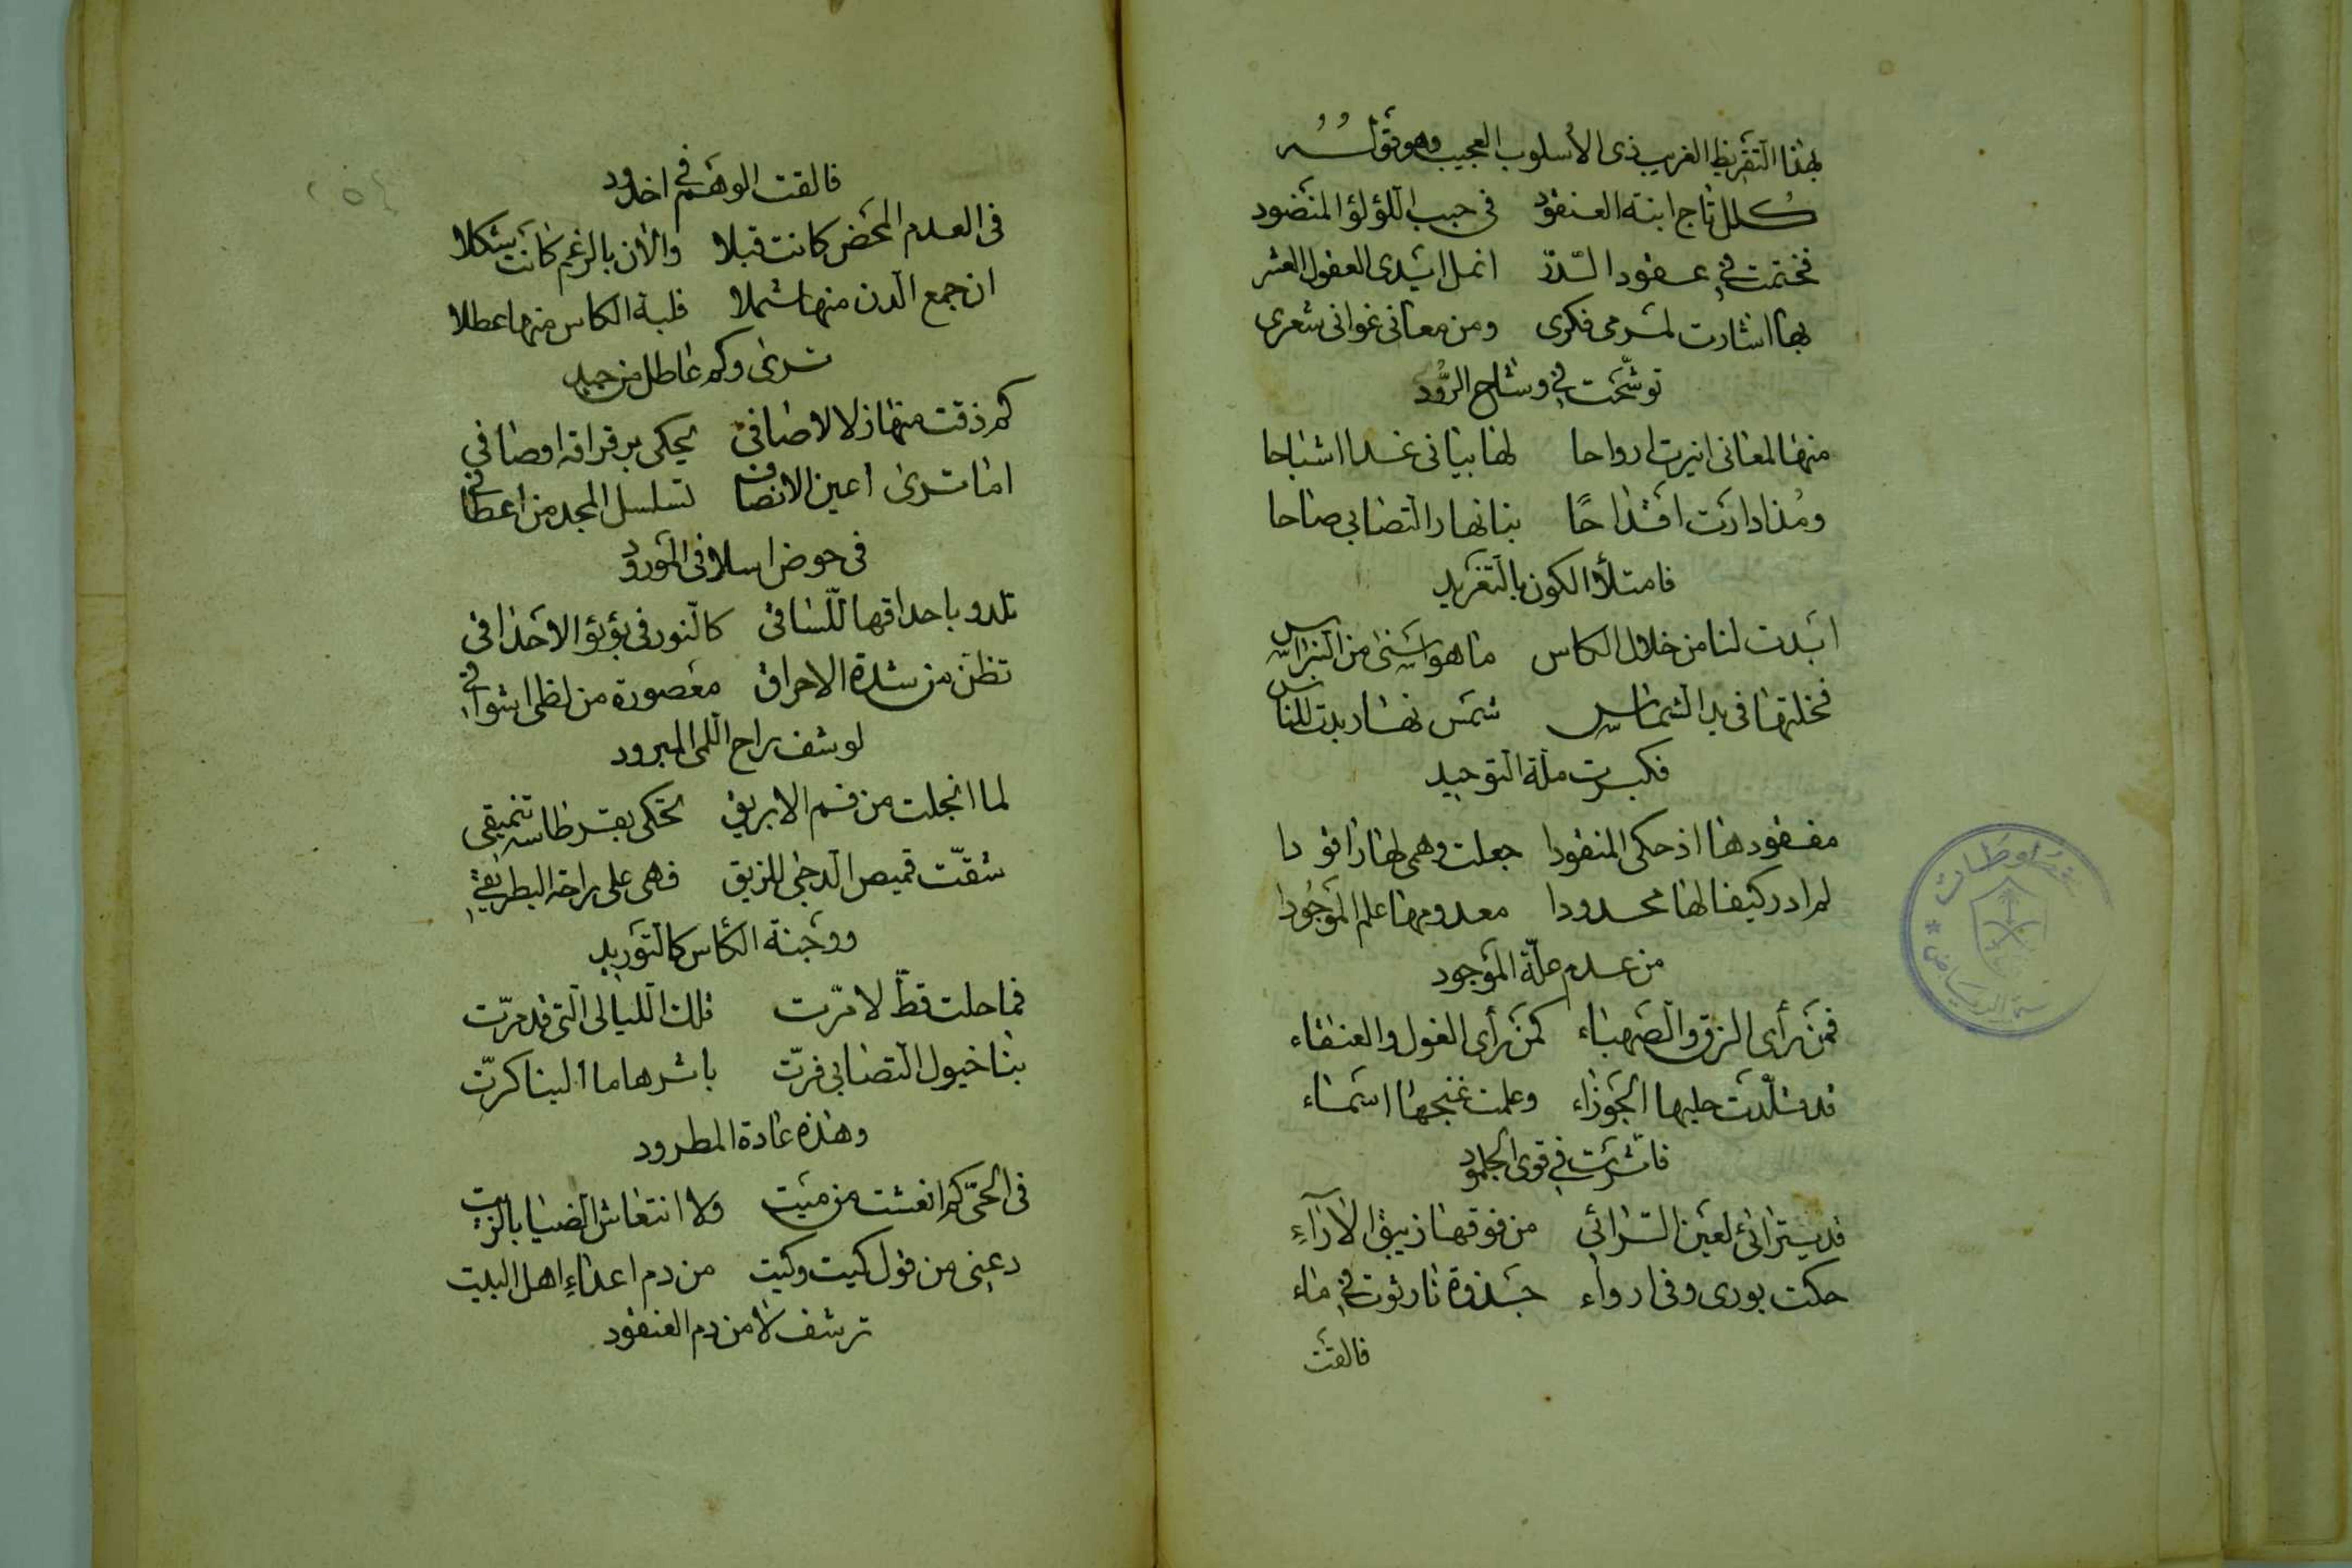 بهذا التقريظ الغريب ذى الأسلوب العجيب وهو قوله
كلل تاج ابنة العنقود في حبب اللؤلؤ المنضود
فختمت في عقود الدر انمل ايدى العقول العشر
بها اشارت لمرمى فكرى ومن معانى غوانى شعرى
توشحت في وشاح الرود
منها المعانى انبرت ارواحا لها بيانى غدا اشباحا
ومذ ادارت اقداحًا بنانها رالتصابى صاحا
فامتلأ الكون بالتغريد
ابدت لنا من خلال الكاس ما هو اسنى من النبراس
فخلتها في يد الشماس شمس نهار بدت للناس
فكبرت ملة التوحيد
مفقودها اذ حكى المنقودا جعلت وهمى لها راقودا
لم ادر كيفا لها محدودا معدومها علم الموجودا
من عدم علة الموجود
فمن رأى الزق والصهباء كمن رأى الغول والعنقاء
قد قلدت حليها الجوزاء وعلمت غنجها اسماء
فاثرت في قوى الجلمود
قد يترائى لعين الرائي من فوقها زيبق الأراء
حكت بورى وفى ارواء جذوة نار ثوت في ماء
فالقت
فالقت الوهم في اخدود
فى العدم المحض كانت قبلا والأن بالرغم كانت شكلا
ان جمع الدن منها شملا فلبة الكاس منها عطلا
ترى وكم عاطل من جيد
كم ذقت منها زلالا صافى يحكى برقراقه اوصافي
اما ترى اعين الانصاف تسلسل المجد من اعطافي
فى حوض اسلافى المورود
تلدو باحداقها للساقى كالنور فى بؤبؤ الاحداق
تظن من شدة الاحراق معصورة من لظى اشواقي
لو شف براح اللمى المبرود
لما انجلت من فم الابريق تحكى بقرطاسه تنميقى
شقت قميص الدجى للزيق فهى على راحة البطريق
ووجنة الكأس كالتوريد
فما حلت قط لا مرت تلك الليالى التى قد مرت
بنا خيول التصابى فرت باسرها ما الينا كرت
وهذه عادة المطرود
فى الحى كم انعشت من ميت ولا انتعاش الضيا بالزيت
دعنى من قول كيت وكيت من دم اعداء اهل البيت
ترشف لا من دم العنقود